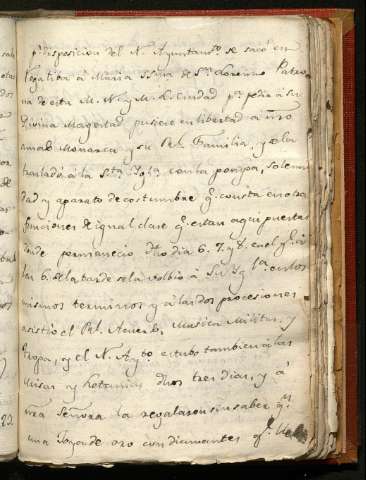 pr disposicion del N. Ayuntamto. se sacó en
Rogativa á Maria SSma de Sn. Lorenzo Patro
na de esta M. N. y M. L. Ciudad pa. pedir á Su
Divina Magestad pusiese en libertad á nro
amado Monarca y su Rl. Familia, y se la
trasladó á la Sta. Ygla. con la pompa, solemni
dad y aparato de costumbre qe. consta en otras
funciones de igual clase qe. estan aqui puestas
donde permaneció dho dia 6. 7. y 8. en el qe. á
las 6. de la tarde se la volbió á Su Ygla. en los
mismos terminos y á las dos procesiones
asistió el Rl. Acuerdo, Musica Militar, y
Tropa, y el N. Ayto. estubo tambien á las
Misas y Letanias dhos tres dias, y á
nra Señora la regalaron sin saber qn.
una Joya de oro con diamantes qe.
22